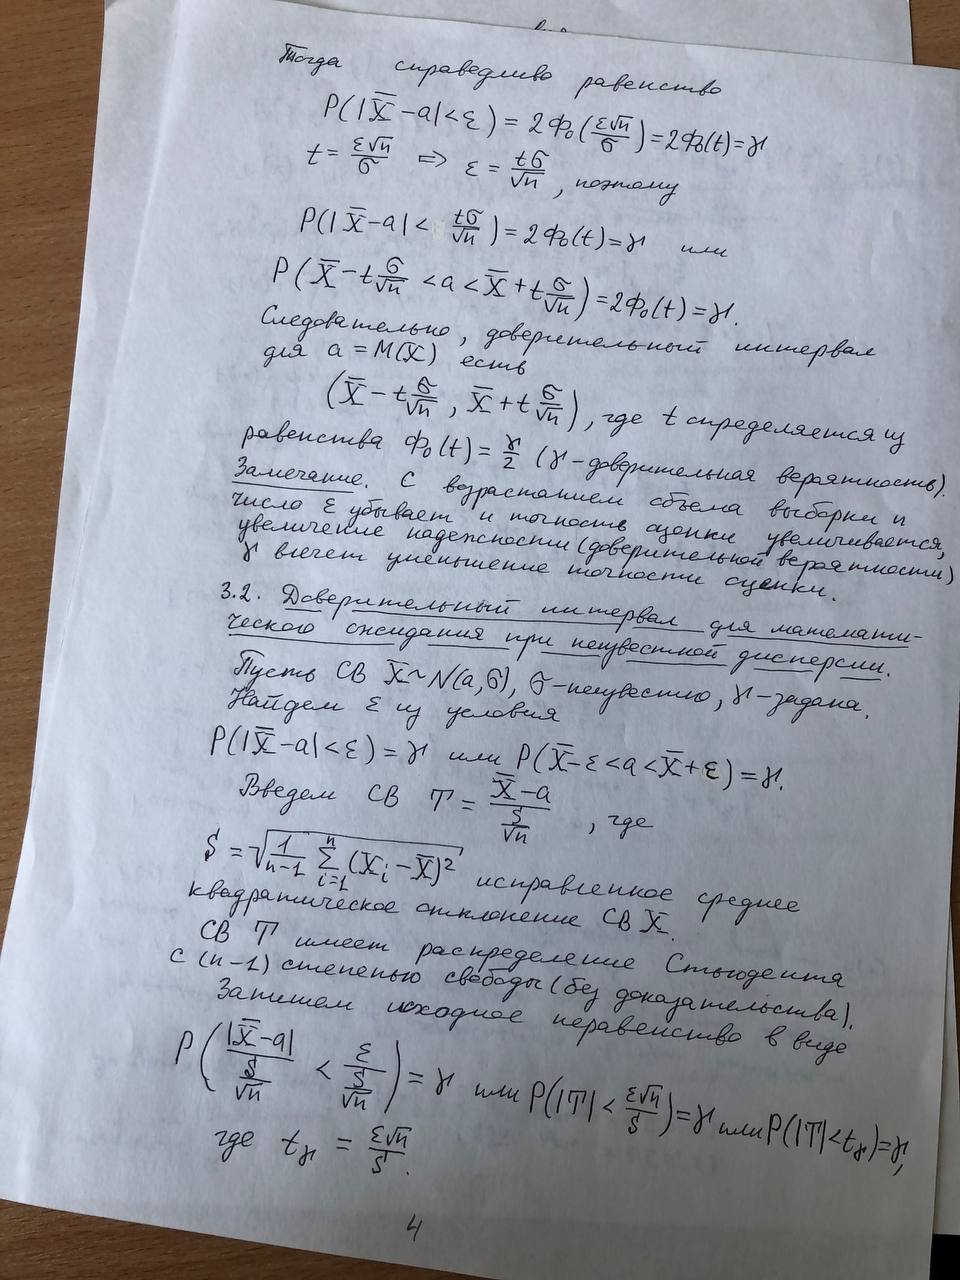 Тогда справедливо равенство
P(|X̅ - a| < ε) = 2Ф₀(ε√n/σ) = 2Ф₀(t) = γ
t = ε√n/σ => ε = tσ/√n, поэтому
P(|X̅ - a| < tσ/√n) = 2Ф₀(t) = γ или
P(X̅ - t σ/√n < a < X̅ + t σ/√n) = 2Ф₀(t) = γ.
Следовательно, доверительный интервал
для a = M(X) есть
(X̅ - t σ/√n, X̅ + t σ/√n), где t определяется из
равенства Ф₀(t) = γ/2 (γ - доверительная вероятность).
Замечание. С возрастанием объема выборки n
число ε убывает и точность оценки увеличивается,
увеличение надежности (доверительной вероятности)
γ влечет уменьшение точности оценки.
3.2. Доверительный интервал для математи-
ческого ожидания при неизвестной дисперсии.
Пусть СВ X ~ N(a, σ), σ - неизвестно, γ - задана.
Найдем ε из условия
P(|X̅ - a| < ε) = γ или P(X̅ - ε < a < X̅ + ε) = γ.
Введем СВ T = (X̅ - a)/(S/√n), где
S = √(1/(n-1) ∑ⁿᵢ₌₁ (Xᵢ - X̅)²) исправленное среднее
квадратическое отклонение СВ X.
СВ T имеет распределение Стьюдента
с (n-1) степенью свободы (без доказательства).
Запишем исходное неравенство в виде
P(|X̅ - a|/(S/√n) < ε/(S/√n)) = γ или P(|T| < ε√n/S) = γ или P(|T| < tᵧ) = γ,
где tᵧ = ε√n/S.
4